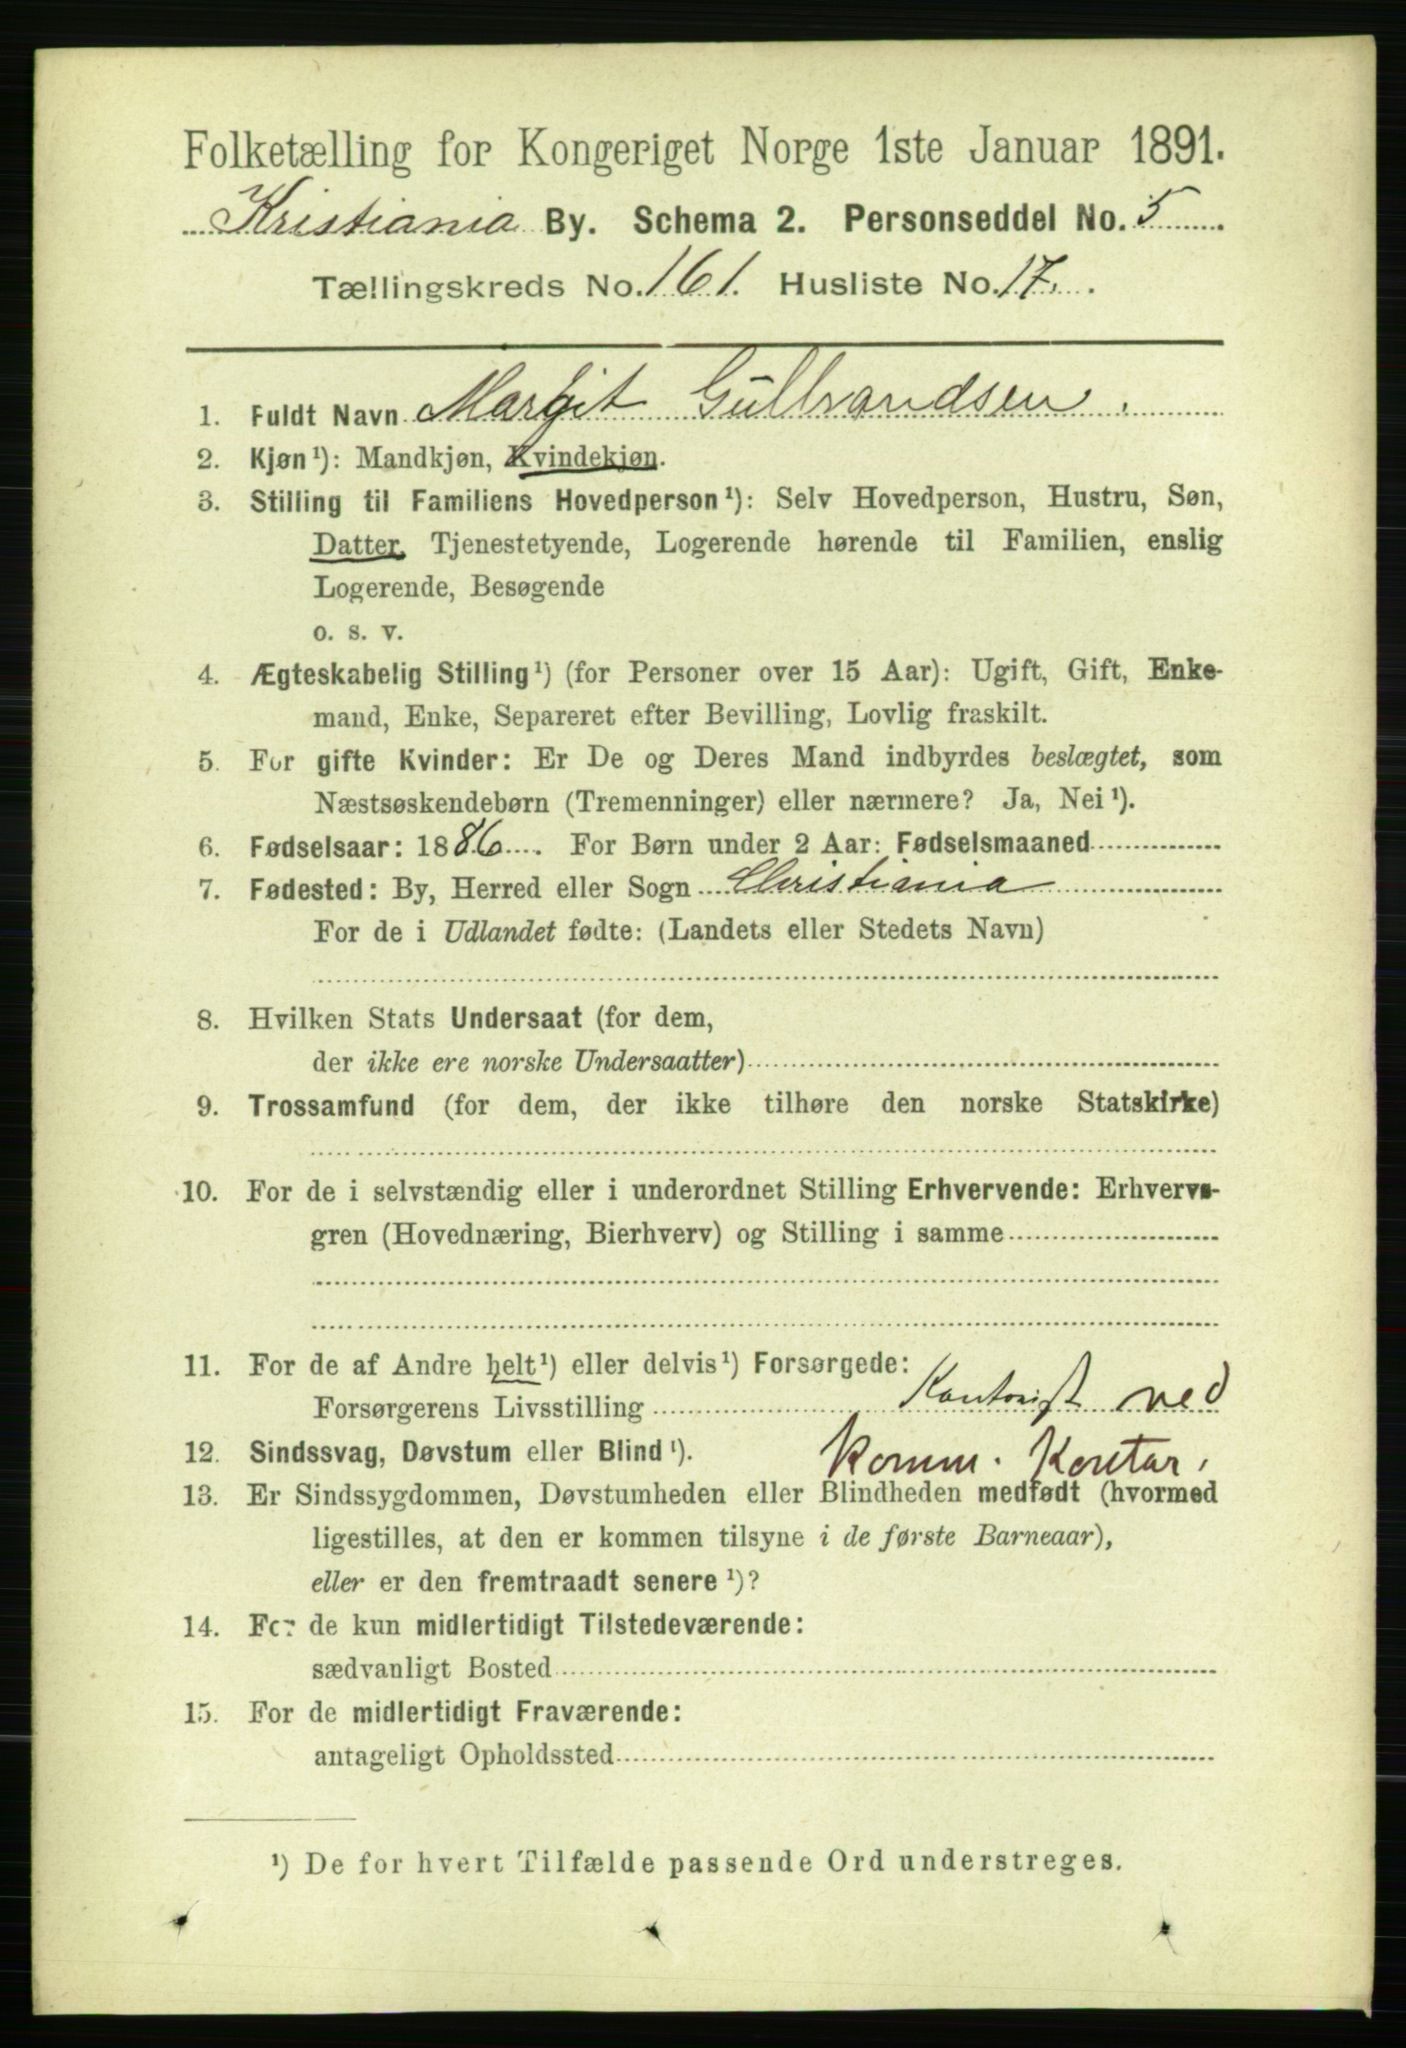 Folketælling for Kongeriget Norge 1ste Januar 1891.
Kristiania By. Schema 2. Personseddel No. 5
Tællingskreds No. 161. Husliste No. 17.
1. Fuldt Navn Margit Gulbrandsen.
2. Kjøn¹): Mandkjøn, Kvindekjøn.
3. Stilling til Familiens Hovedperson¹): Selv Hovedperson, Hustru, Søn,
Datter, Tjenestetyende, Logerende hørende til Familien, enslig
Logerende, Besøgende
o. s. v.
4. Ægteskabelig Stilling¹) (for Personer over 15 Aar): Ugift, Gift, Enke-
mand, Enke, Separeret efter Bevilling, Lovlig fraskilt.
5. For gifte Kvinder: Er De og Deres Mand indbyrdes beslægtet, som
Næstsøskendebørn (Tremenninger) eller nærmere? Ja, Nei¹).
6. Fødselsaar: 1886. For Børn under 2 Aar: Fødselsmaaned
7. Fødested: By, Herred eller Sogn Christiania
For de i Udlandet fødte: (Landets eller Stedets Navn)
8. Hvilken Stats Undersaat (for dem,
der ikke ere norske Undersaatter)
9. Trossamfund (for dem, der ikke tilhøre den norske Statskirke)
10. For de i selvstændig eller i underordnet Stilling Erhvervende: Erhvervs-
gren (Hovednæring, Bierhverv) og Stilling i samme
11. For de af Andre helt¹) eller delvis¹) Forsørgede:
Forsørgerens Livsstilling Kontorist ved
12. Sindssvag, Døvstum eller Blind¹). Komm. Kontor,
13. Er Sindssygdommen, Døvstumheden eller Blindheden medfødt (hvormed
ligestilles, at den er kommen tilsyne i de første Barneaar),
eller er den fremtraadt senere¹)?
14. For de kun midlertidigt Tilstedeværende:
sædvanligt Bosted
15. For de midlertidigt Fraværende:
antageligt Opholdssted
¹) De for hvert Tilfælde passende Ord understreges.